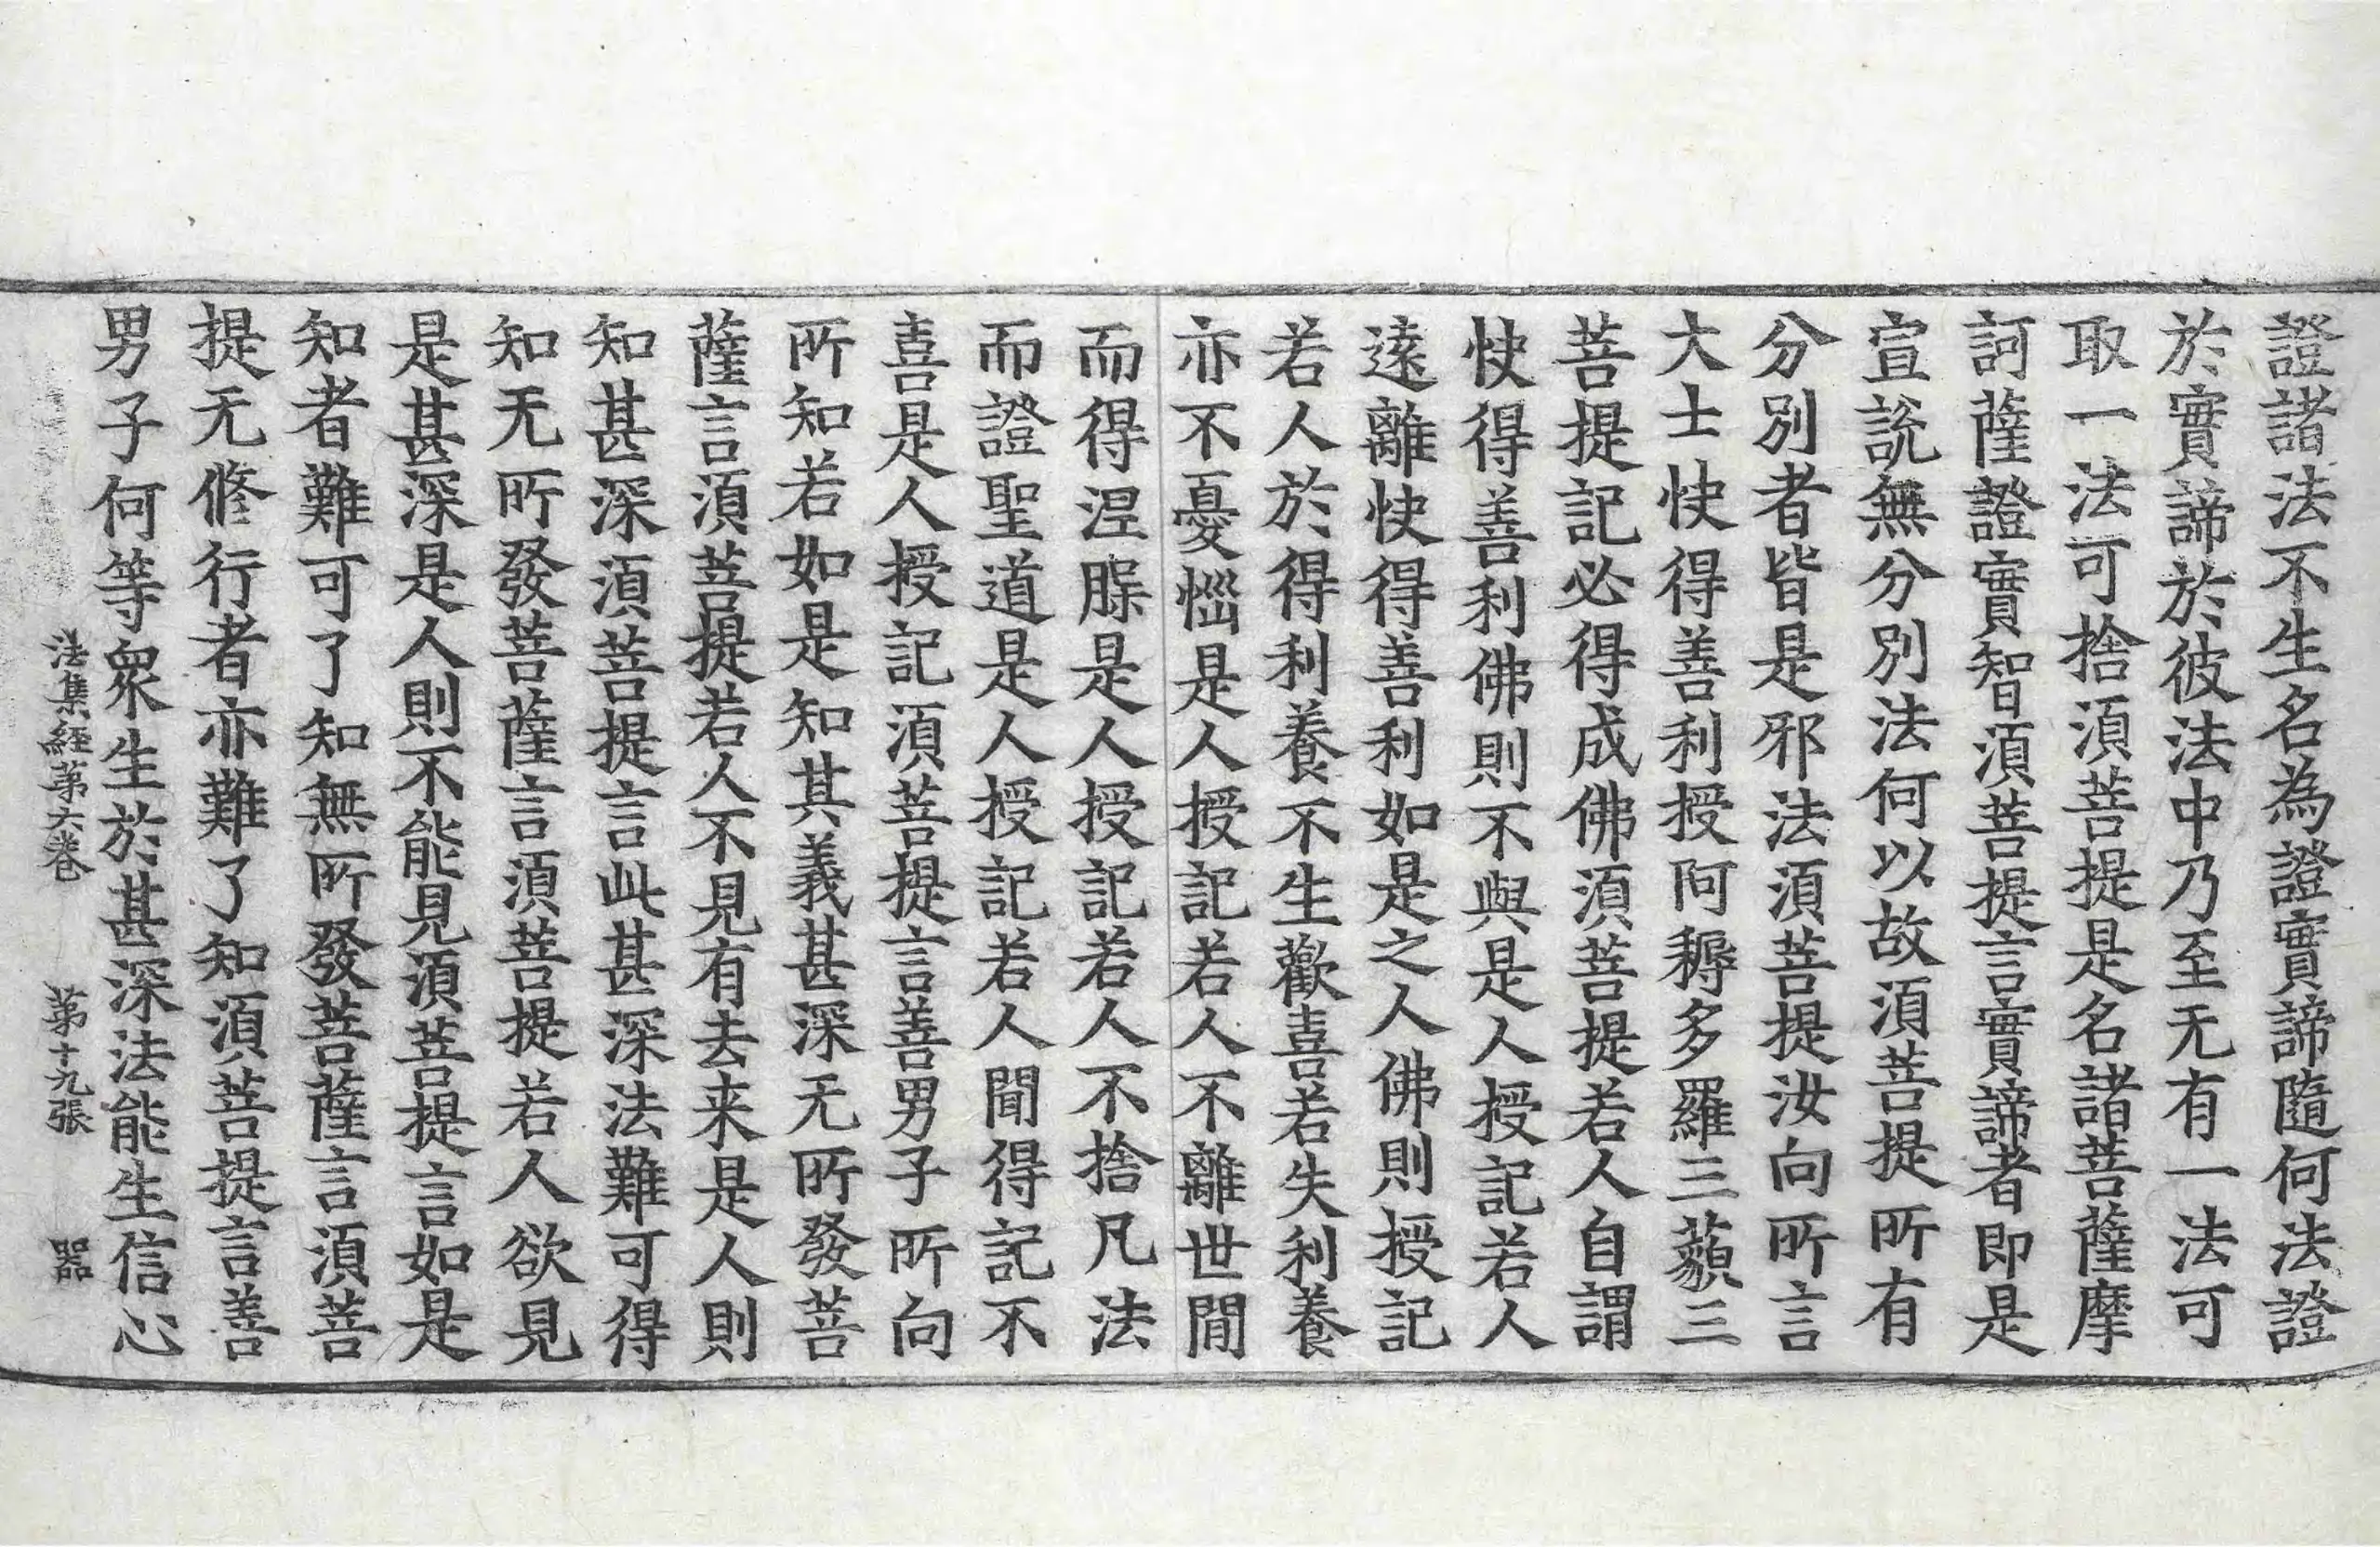 證諸法不生名為證實諦隨何法證
於實諦於彼法中乃至无有一法可
取一法可捨湏菩提是名諸菩薩摩
訶薩證實智湏菩提言實諦者即是
宣說無分別法何以故湏菩提所有
分別者皆是邪法湏菩提汝向所言
大士快得善利授阿耨多羅三藐三
菩提記必得成佛湏菩提若人自謂
快得善利佛則不與是人授記若人
遠離快得善利如是之人佛則授記
若人於得利養不生歡喜若失利養
亦不憂惱是人授記若人不離世間
而得涅槃是人授記若人不捨凡法
而證聖道是人授記若人聞得記不
喜是人授記湏菩提言善男子所向
所知若如是知其義甚深无所發菩
薩言湏菩提若人不見有去来是人則
知甚深湏菩提言此甚深法難可得
知无所發菩薩言湏菩提若人欲見
是甚深是人則不能見湏菩提言如是
知者難可了知無所發菩薩言湏菩
提无修行者亦難了知湏菩提言善
男子何等衆生於甚深法能生信心
法集経第六卷 第十九張 器